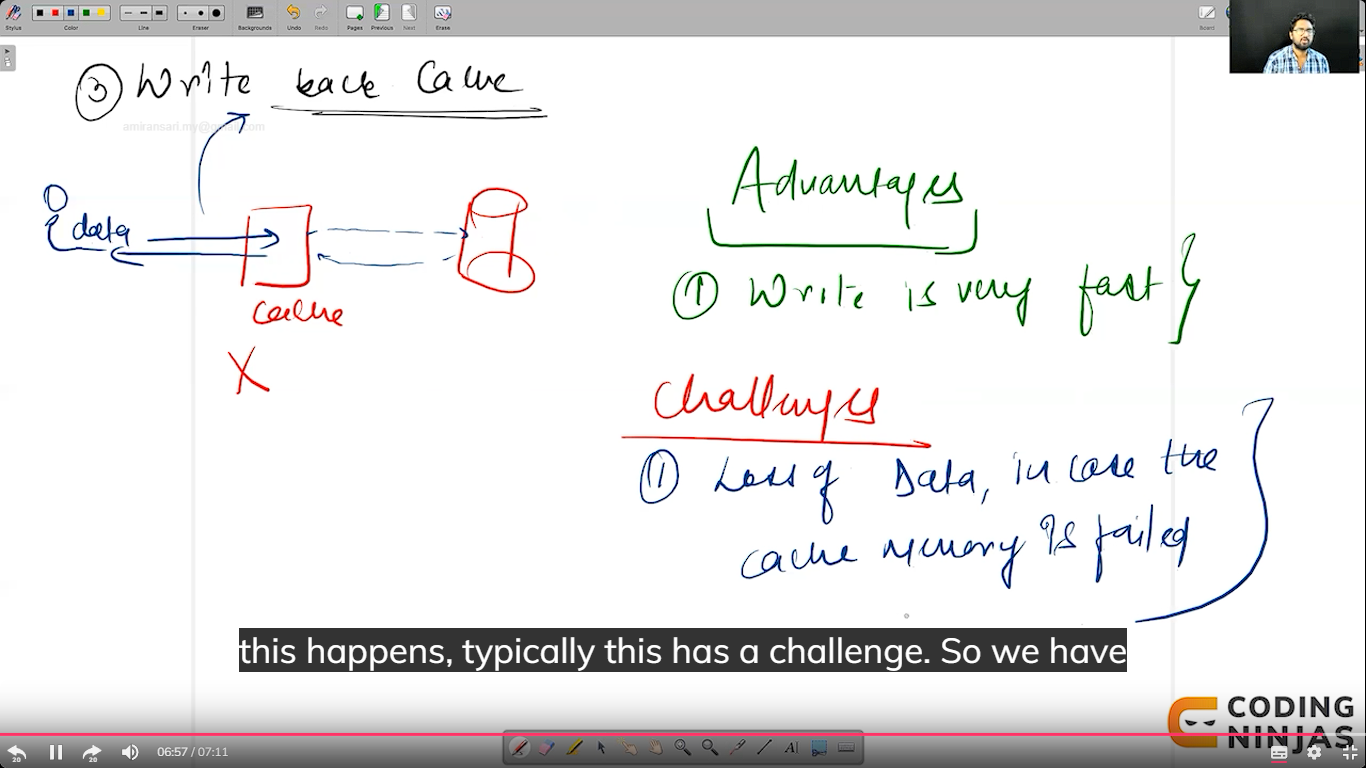 Stylus
Color
Line
Eraser
Backgrounds
Undo
Redo
Pages
Previous
Next
Erase
Board
③ Write back Cache
amiransari.my@gmail.com
data
cache
X
Advantages
① Write is very fast
Challenges
① Loss of Data, in case the
cache memory is failed
this happens, typically this has a challenge. So we have
CODING
NINJAS
20
20
06:57 / 07:11